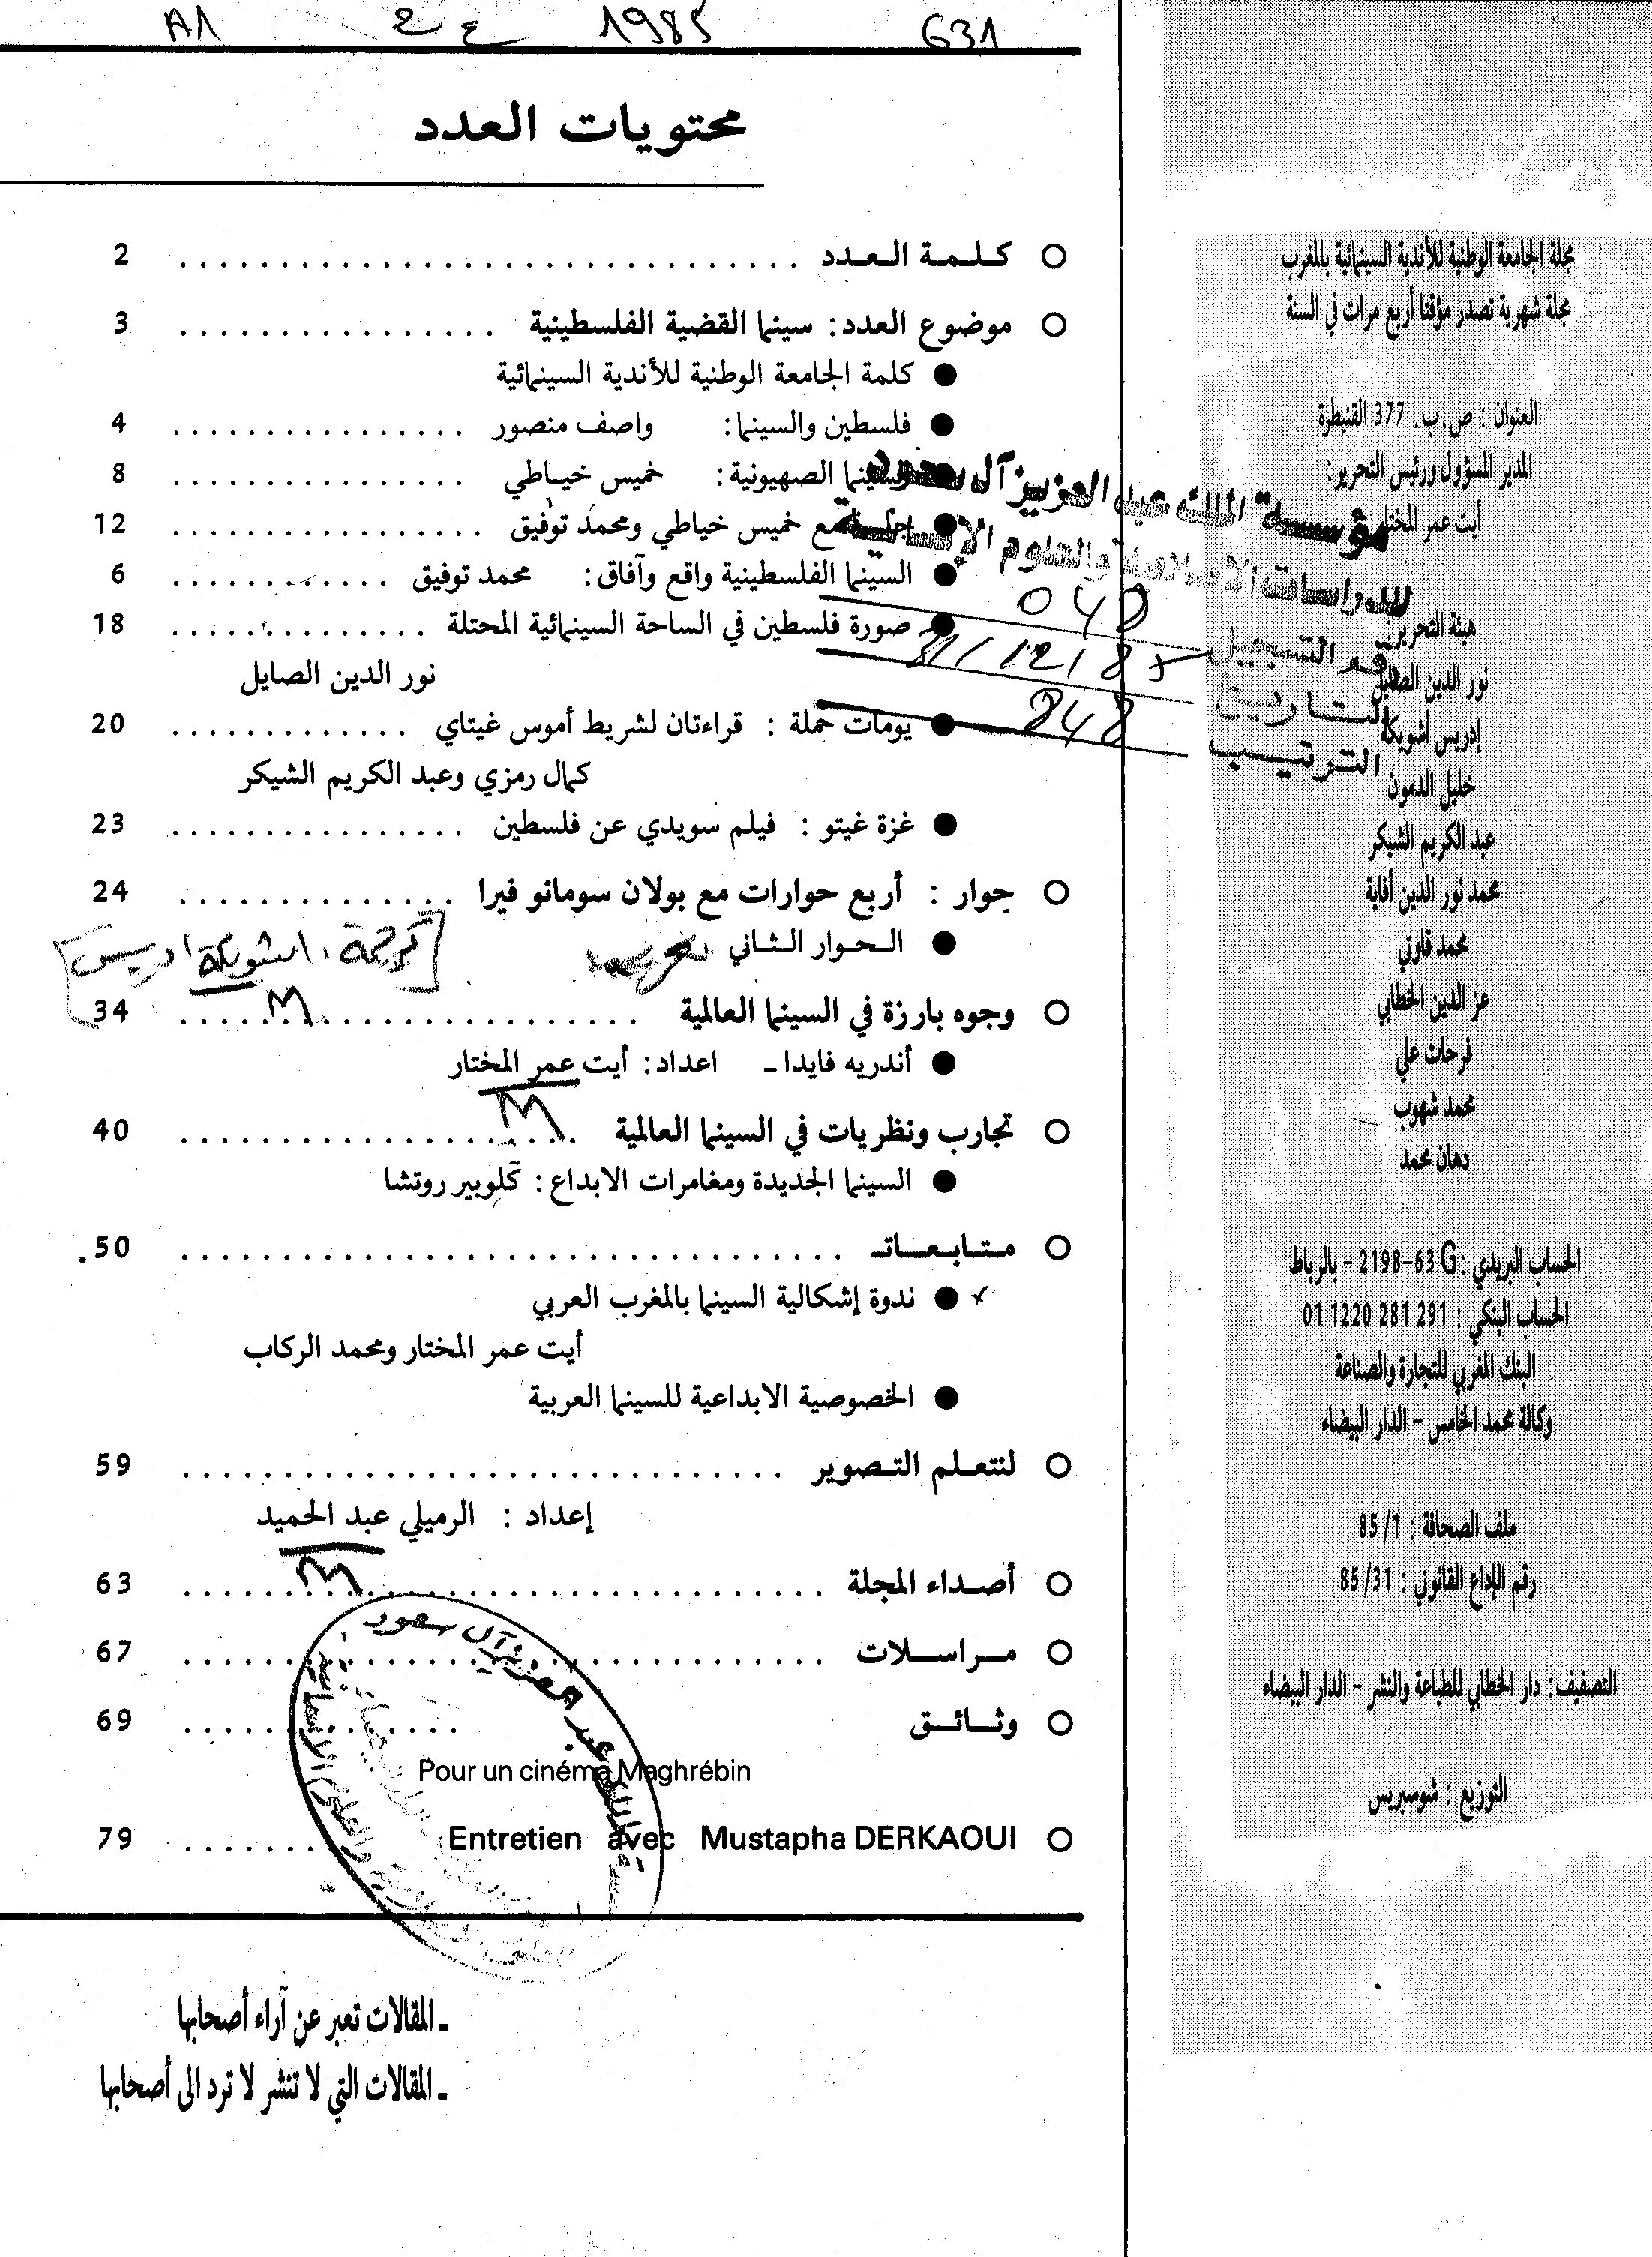 A1 ع 2 1985 G31
محتويات العدد
كلمة العدد 2
موضوع العدد: سينما القضية الفلسطينية 3
كلمة الجامعة الوطنية للأندية السينمائية
فلسطين والسينما: واصف منصور 4
السينما الصهيونية: خميس خياطي 8
مع خميس خياطي ومحمد توفيق 12
السينما الفلسطينية واقع وآفاق: محمد توفيق 6
صورة فلسطين في الساحة السينمائية المحتلة 18
نور الدين الصايل
يومات حملة : قراءتان لشريط أموس غيتاي 20
كمال رمزي وعبد الكريم الشيكر
غزة غيتو : فيلم سويدي عن فلسطين 23
حوار : أربع حوارات مع بولان سومانو فيرا 24
الحوار الثاني
ترجمة: اشويكة ادريس
وجوه بارزة في السينما العالمية 34
أندريه فايدا - اعداد: أيت عمر المختار
تجارب ونظريات في السينما العالمية 40
السينما الجديدة ومغامرات الابداع: گلوبير روتشا
متابعات 50
ندوة إشكالية السينما بالمغرب العربي
أيت عمر المختار ومحمد الركاب
الخصوصية الابداعية للسينما العربية
لنتعلم التصوير 59
إعداد : الرميلي عبد الحميد
أصداء المجلة 63
مراسلات 67
وثائق 69
Pour un cinéma Maghrébin
Entretien avec Mustapha DERKAOUI 79
ـ المقالات تعبر عن آراء أصحابها
ـ المقالات التي لا تنشر لا ترد الى أصحابها
مجلة الجامعة الوطنية للأندية السينمائية بالمغرب
مجلة شهرية تصدر مؤقتا أربع مرات في السنة
العنوان : ص.ب. 377 القنيطرة
المدير المسؤول ورئيس التحرير:
أيت عمر المختار
هيئة التحرير:
نور الدين الصايل
إدريس أشويكة
خليل الدمون
عبد الكريم الشيكر
محمد نور الدين أفاية
محمد قاوتي
عز الدين الخطابي
فرحات علي
محمد شهوب
دهان محمد
الحساب البريدي : 2198-63 G - بالرباط
الحساب البنكي : 01 1220 281 291
البنك المغربي للتجارة والصناعة
وكالة محمد الخامس - الدار البيضاء
ملف الصحافة : 85/1
رقم الإيداع القانوني : 85/31
التصفيف: دار الخطابي للطباعة والنشر - الدار البيضاء
التوزيع : شوسبريس
مؤسسة الملك عبد العزيز آل سعود
للدراسات الإسلامية والعلوم الإنسانية
رقم التسجيل
التاريخ
الترتيب